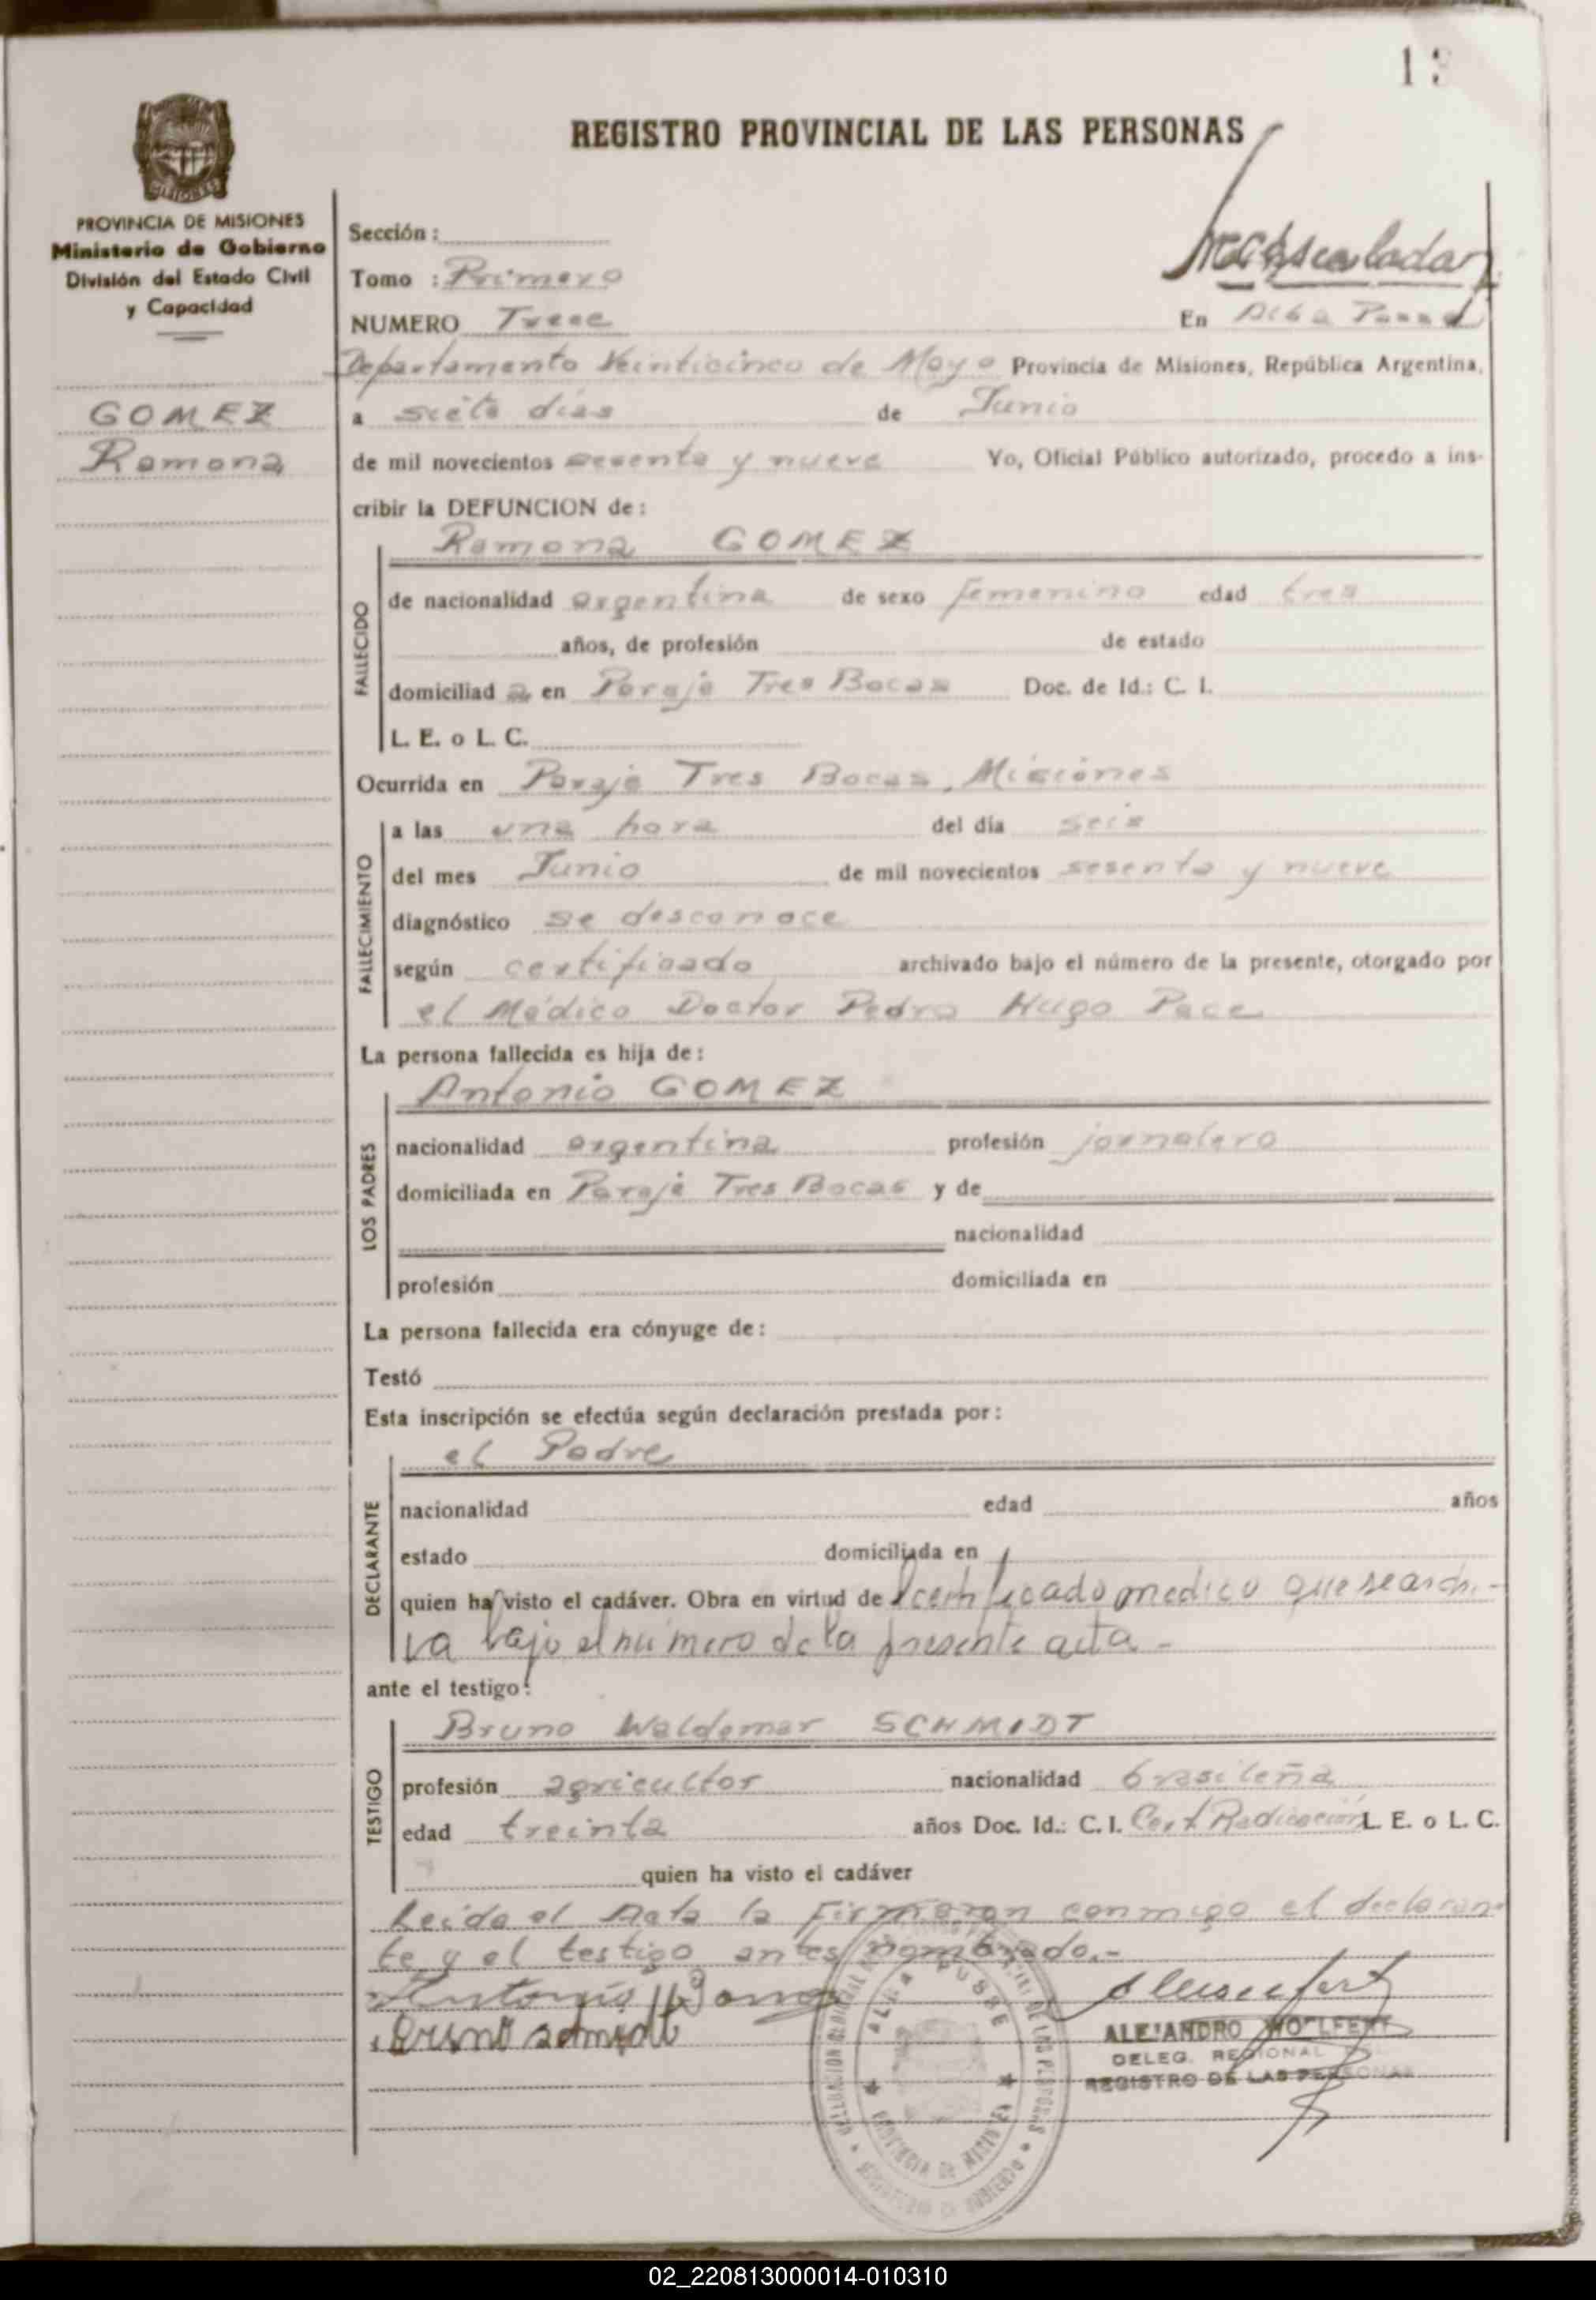 13
REGISTRO PROVINCIAL DE LAS PERSONAS
MISIONES
PROVINCIA DE MISIONES
Ministerio de Gobierno
División del Estado Civil
y Capacidad
GOMEZ
Ramona
Sección :
Tomo : Primero
NUMERO Trece En Alba Posse
Departamento Veinticinco de Mayo Provincia de Misiones, República Argentina,
a siete días de Junio
de mil novecientos sesenta y nueve Yo, Oficial Público autorizado, procedo a ins-
cribir la DEFUNCION de :
Ramona GOMEZ
FALLECIDO
de nacionalidad argentina de sexo femenino edad tres
años, de profesión de estado
domiciliad a en Paraje Tres Bocas Doc. de Id.: C. I.
L. E. o L. C.
Ocurrida en Paraje Tres Bocas, Misiones
FALLECIMIENTO
a las una hora del día seis
del mes Junio de mil novecientos sesenta y nueve
diagnóstico se desconoce
según certificado archivado bajo el número de la presente, otorgado por
el Médico Doctor Pedro Hugo Pace
La persona fallecida es hija de :
Antonio GOMEZ
LOS PADRES
nacionalidad argentina profesión jornalero
domiciliada en Paraje Tres Bocas y de
nacionalidad
profesión domiciliada en
La persona fallecida era cónyuge de :
Testó
Esta inscripción se efectúa según declaración prestada por :
el Padre
DECLARANTE
nacionalidad edad años
estado domiciliada en
quien ha visto el cadáver. Obra en virtud de certificado medico que se archi-
va bajo el número de la presente acta -
ante el testigo :
Bruno Waldemar SCHMIDT
TESTIGO
profesión agricultor nacionalidad brasileña
edad treinta años Doc. Id.: C. I. Cert Radicación L. E. o L. C.
quien ha visto el cadáver
Leida el Acta la firmaron conmigo el declaran-
te y el testigo antes nombrado.-
Antonio Gomez
Bruno Schmidt
ALBA POSSE
PROVINCIA DE MISIONES
ALEJANDRO WOLFERT
DELEG. REGIONAL
REGISTRO DE LAS PERSONAS
02_220813000014-010310